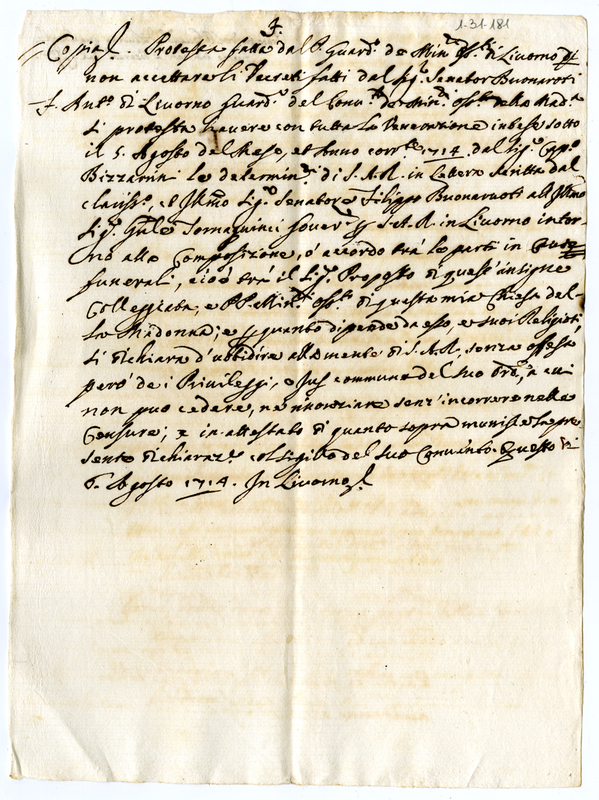 1-31-181
Copia. Protesta fatta dal P. Guard.o de Min.ri Oss.ti di Livorno di
non accettare li Decreti fatti dal Sig.r Senator Buonaroti
F. Ant.o di Livorno Guard.o del Conv.to de Min.ri Oss.ti della Mad.a
si protesta havere con tutta la Venerazione intese sotto
il 5. Agosto del Mese, et Anno corr.te 1714. dal Sig.r Capp.o
Bizzarrini le determin.ni di S.A.R. in Lettera scritta dal
clariss.o, et Ill.mo Sig.r Senatore Filippo Buonaruoti all Ill.mo
Sig.r Gn̄le Tornaquinci Gover.re p S.A.R. in Livorno intor-
no alla Composizione, o' accordo trà le parti in
funerali, cioè trà il Sig.r Proposto di quest' insigne
Collegiata, e PP. Min.ri Oss.ti di questa mia Chiesa del-
la Madonna; e p quanto dipende da esso, e suoi Religiosi,
si dichiara d'ubbidire alla mente di S.A.R. senza offesa
però de i Privileggi, e Jus commune del suo Ord.e, a cui
non puo cedere, ne rinonziare senz' incorrere nelle
Censure; e in attestato di quanto sopra munisce la pre-
sente dichiaraz.e col sigillo del suo Convento. Questo di
6. Agosto 1714. In Livorno